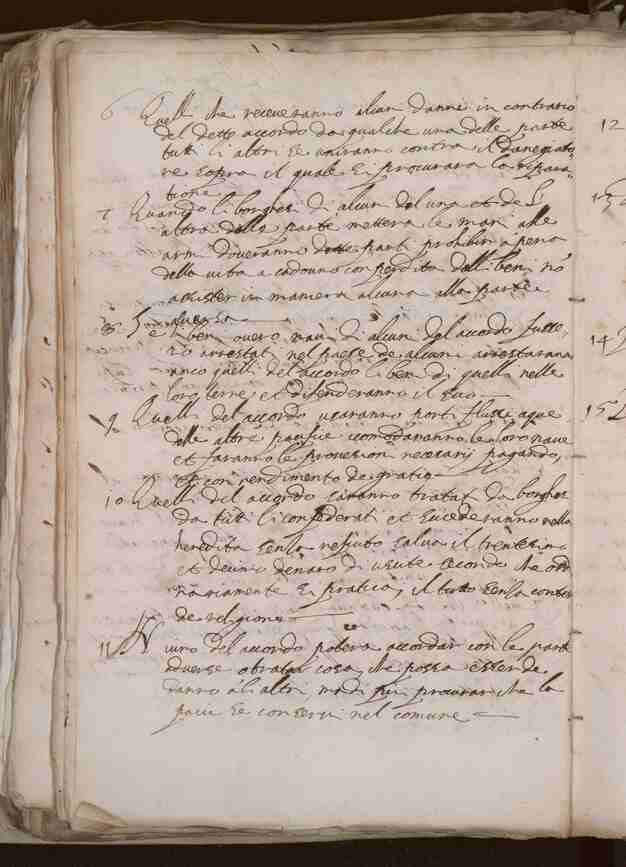 6 Quelli che receveranno alcun danni in contrario
del detto accordo da qualche una delle parte
tutti li altri se uniranno contra il daneggiato=
re sopra il quale si procurara la repara=
tione
7 Quando li borghesi di alcun del una et de l'
altra delle parte mettera le mani alle
arm doveranno dette parti prohibir a pena
della vita a cadauno con perdita delli beni no
assister in maniera alcuna alla parte
aversa
8 Se ben overo navi di alcun del accordo fusse=
ro arrestati nel paese de alcuni arrestarana
anco quelli del accordo li ben di quelli nelle
loro terre et difenderanno il suo
9 Quelli del accordo usaranno porti flussi aque
delle altre pacifice accomodaranno le loro nave
et faranno le provesion necesarij pagando,
et con rendimento de gratie
10 Quelli del accordo saranno tratati da borghesi
da tutti li confederati et sucederanno nella
heredita senza resciuto salva il
et decimo denaro di secondo che ordi
nariamente si pratica, il tutto senza contes
de religione
11 Niuno del accordo potera accordar con le parte
adverse o tratar cosa che possa esser de
danno ali altri ma di piu procurar che la
pace se conservi nel comune
12
13
14
15